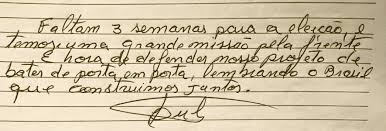 Faltam 3 semanas para a eleição, e
temos uma grande missão pela frente
É hora de defender nosso projeto de
bater de porta em porta, lembrando o Brasil
que construimos juntos.